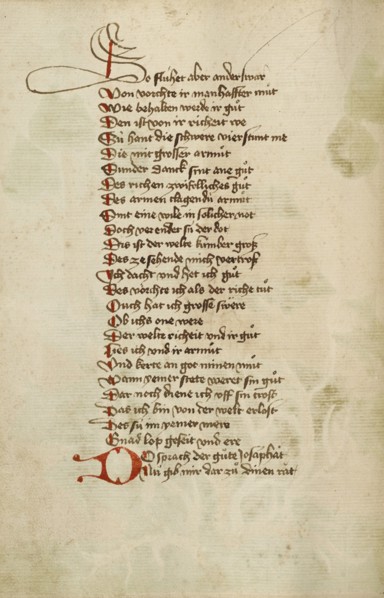 So fluhet aber anderswar
Von vorchte ir manhaffter můt
Wie behalten werde ir gůt
Den ist von ir richeit we
Sů hant die schwere vierstunt me
Die mit grosser armůt
Sunder danck sint ane gůt
Des richen zwifelliches gůt
Des armen clagendū armůt
Sint eine wile in solicher not
Doch verendet sū der dot
Dis ist der welte kumber groß
Des ze sehende mich verdroß
Ich dacht vnd het ich gůt
Des vorchte ich als der riche tůt
Ouch hat ich grosse swere
Ob ichs one were
Der welte richeit vnd ir gůt
Lies ich vnd ir armůt
Vnd kerte an got minen můt
Wann yemer stete weret sin gůt
Dar noch diene ich vff sin trost
Das ich bin von der welt erlost
Des sū im yemer mere
Gnad lop geseit vnd ere
DO sprach der gůte Josaphat
Nu gib mir dar zů dinen rat